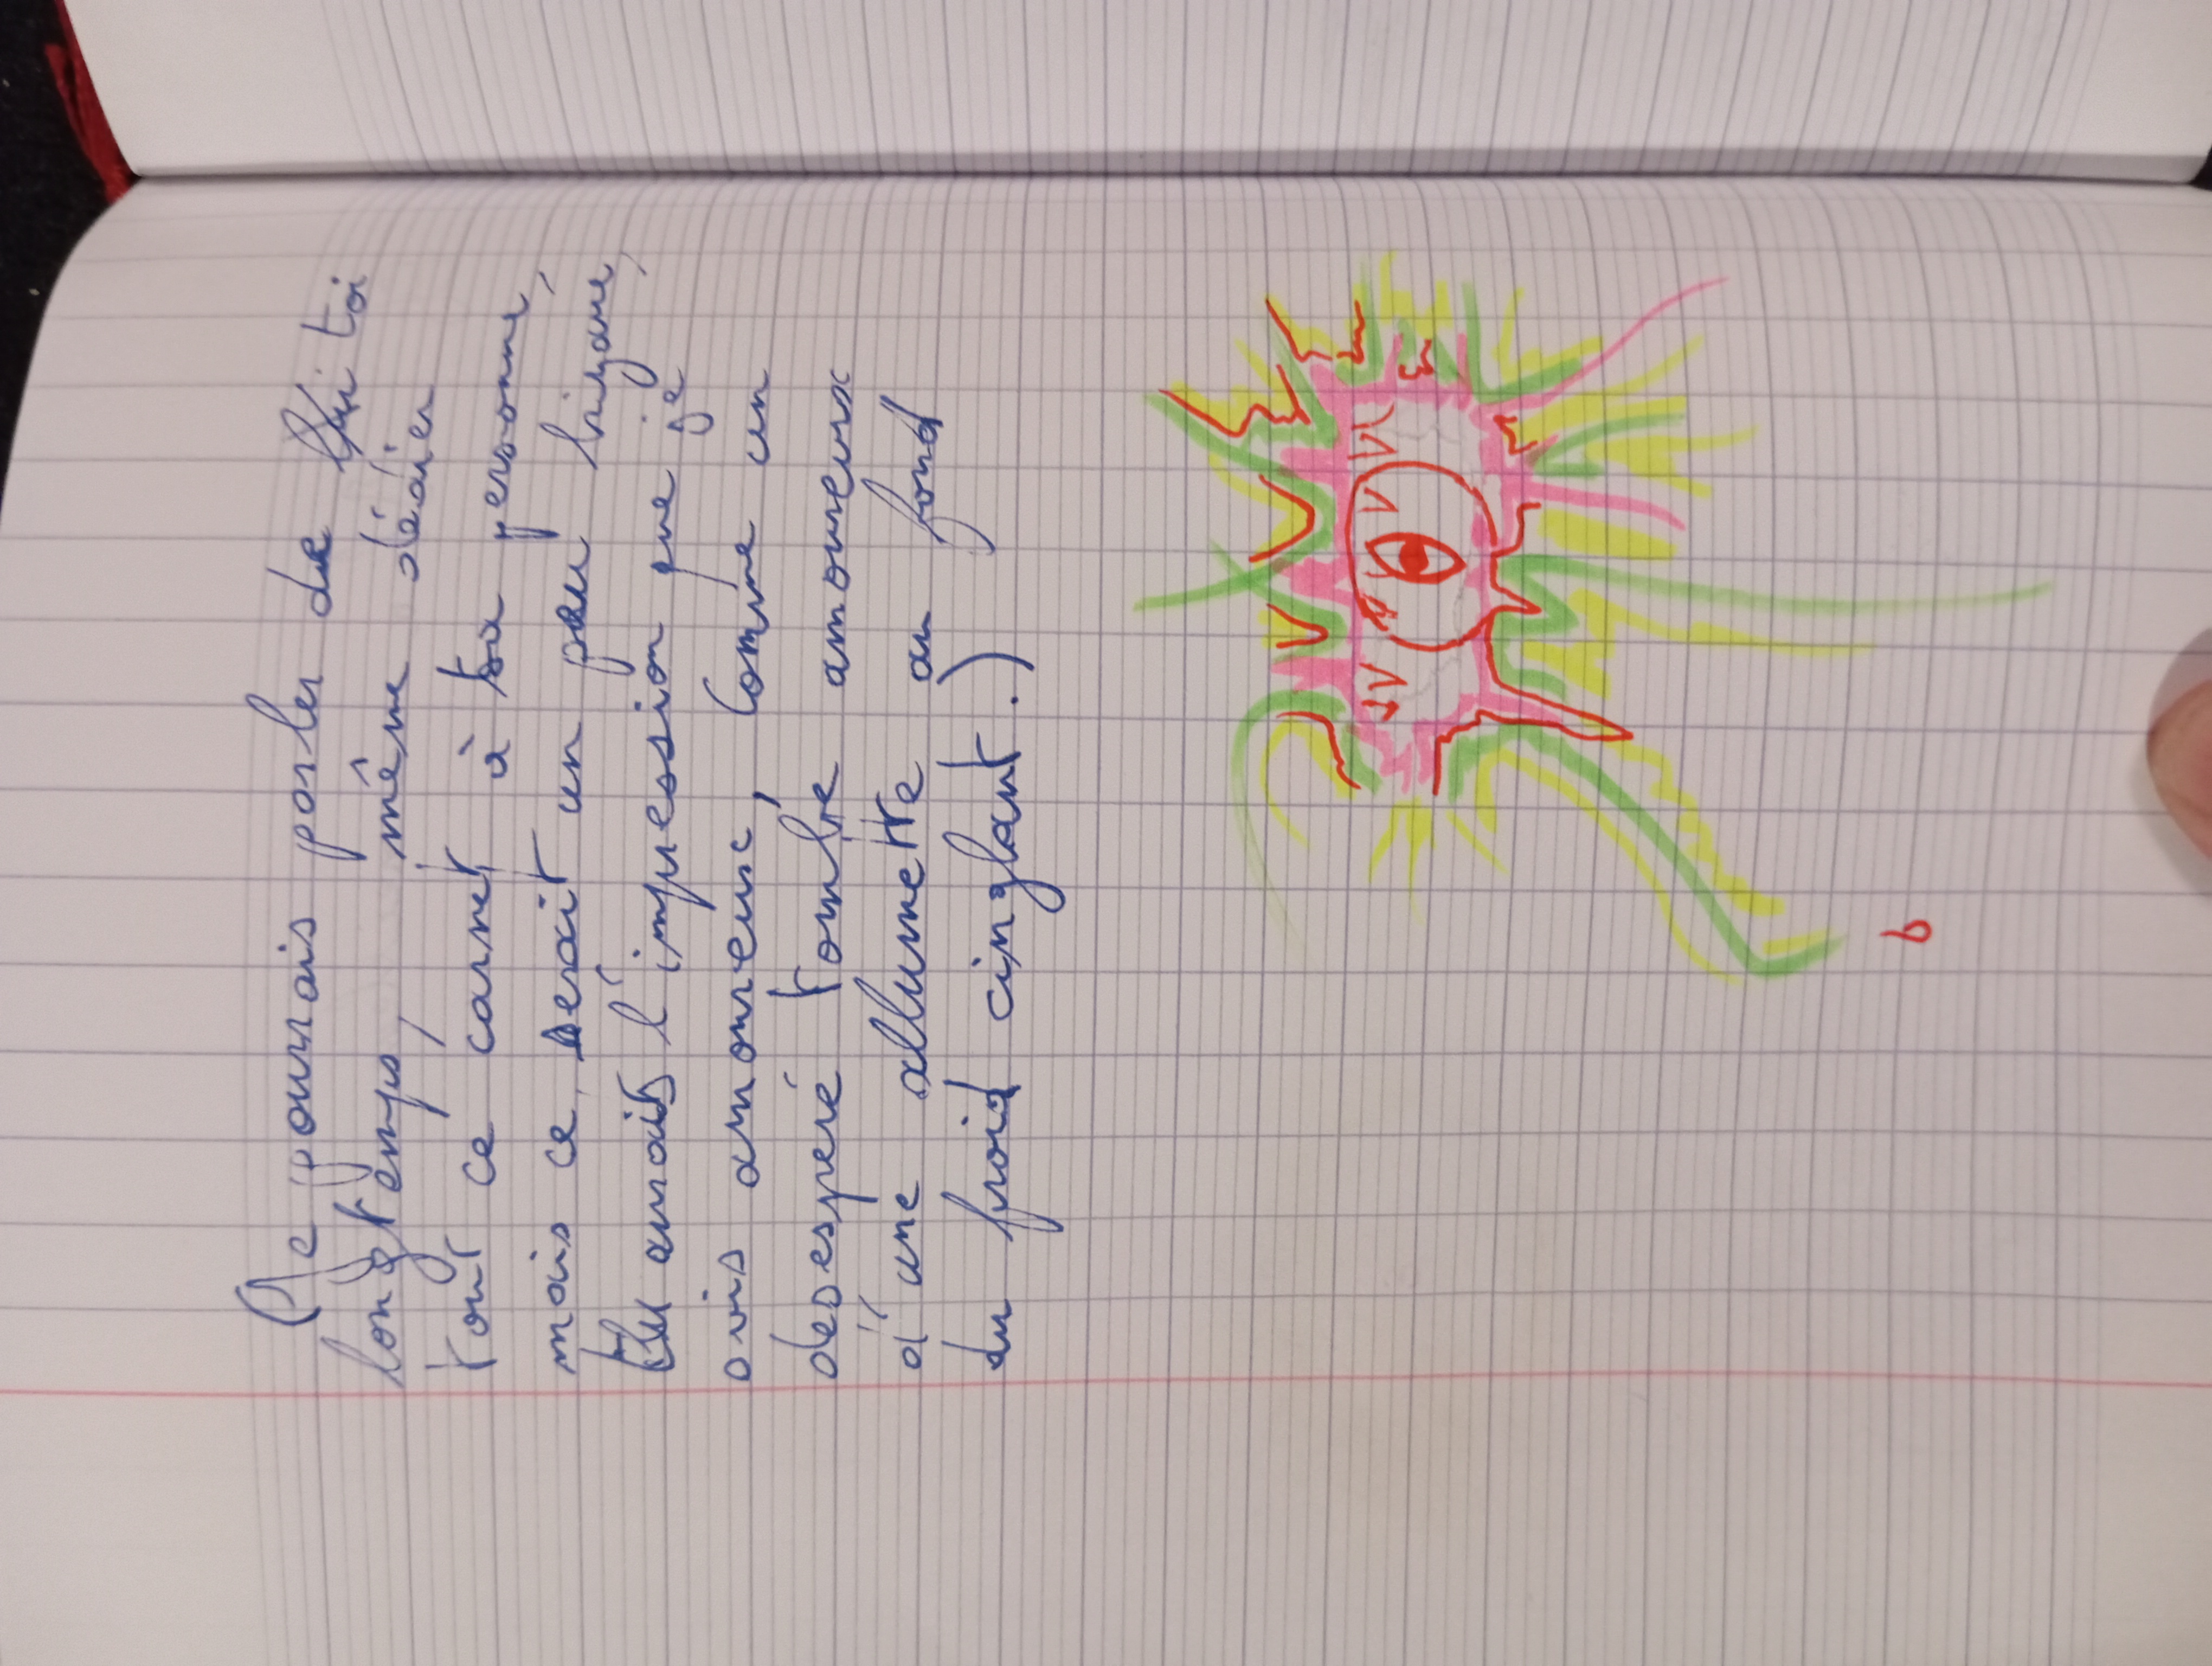 (Je pourrais parler de lui toi
longtemps, même dédier
tout ce carnet à ta personne,
mais ce serait un peu bizarre,
tu aurais l'impression que je
suis amoureux, comme un
desesperé tombe amoureux
d'une allumette au fond
du froid cinglant.)